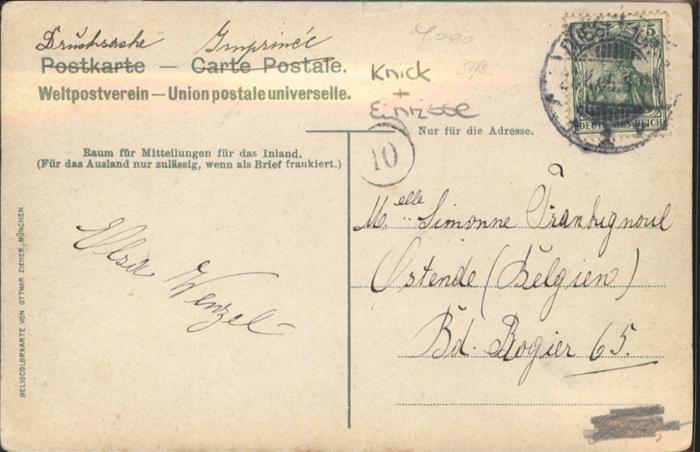 Drucksache Imprimée
Postkarte — Carte Postale.
Weltpostverein — Union postale universelle.
Knick
+
Einrisse
5
DEUTSCHES REICH
Nur für die Adresse.
Raum für Mitteilungen für das Inland.
(Für das Ausland nur zulässig, wenn als Brief frankiert.)
10
Elsa Wenzel
Melle Simonne Frankignoul
Ostende (Belgien)
Bd. Rogier 65.
HELIOCOLORKARTE VON OTTMAR ZIEHER, MÜNCHEN